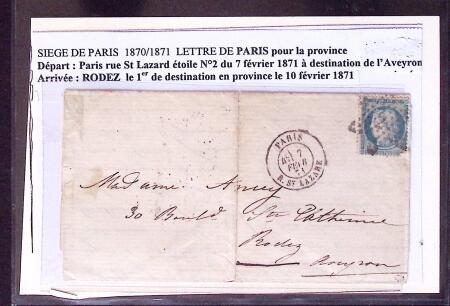 SIEGE DE PARIS 1870/1871 LETTRE DE PARIS pour la province
Départ : Paris rue St Lazard étoile N°2 du 7 février 1871 à destination de l'Aveyron
Arrivée : RODEZ le 1er de destination en province le 10 février 1871
PARIS
7
FEVR
71
R. ST LAZARE
Madame
30 Bould Ste Catherine
Rodez
Aveyron